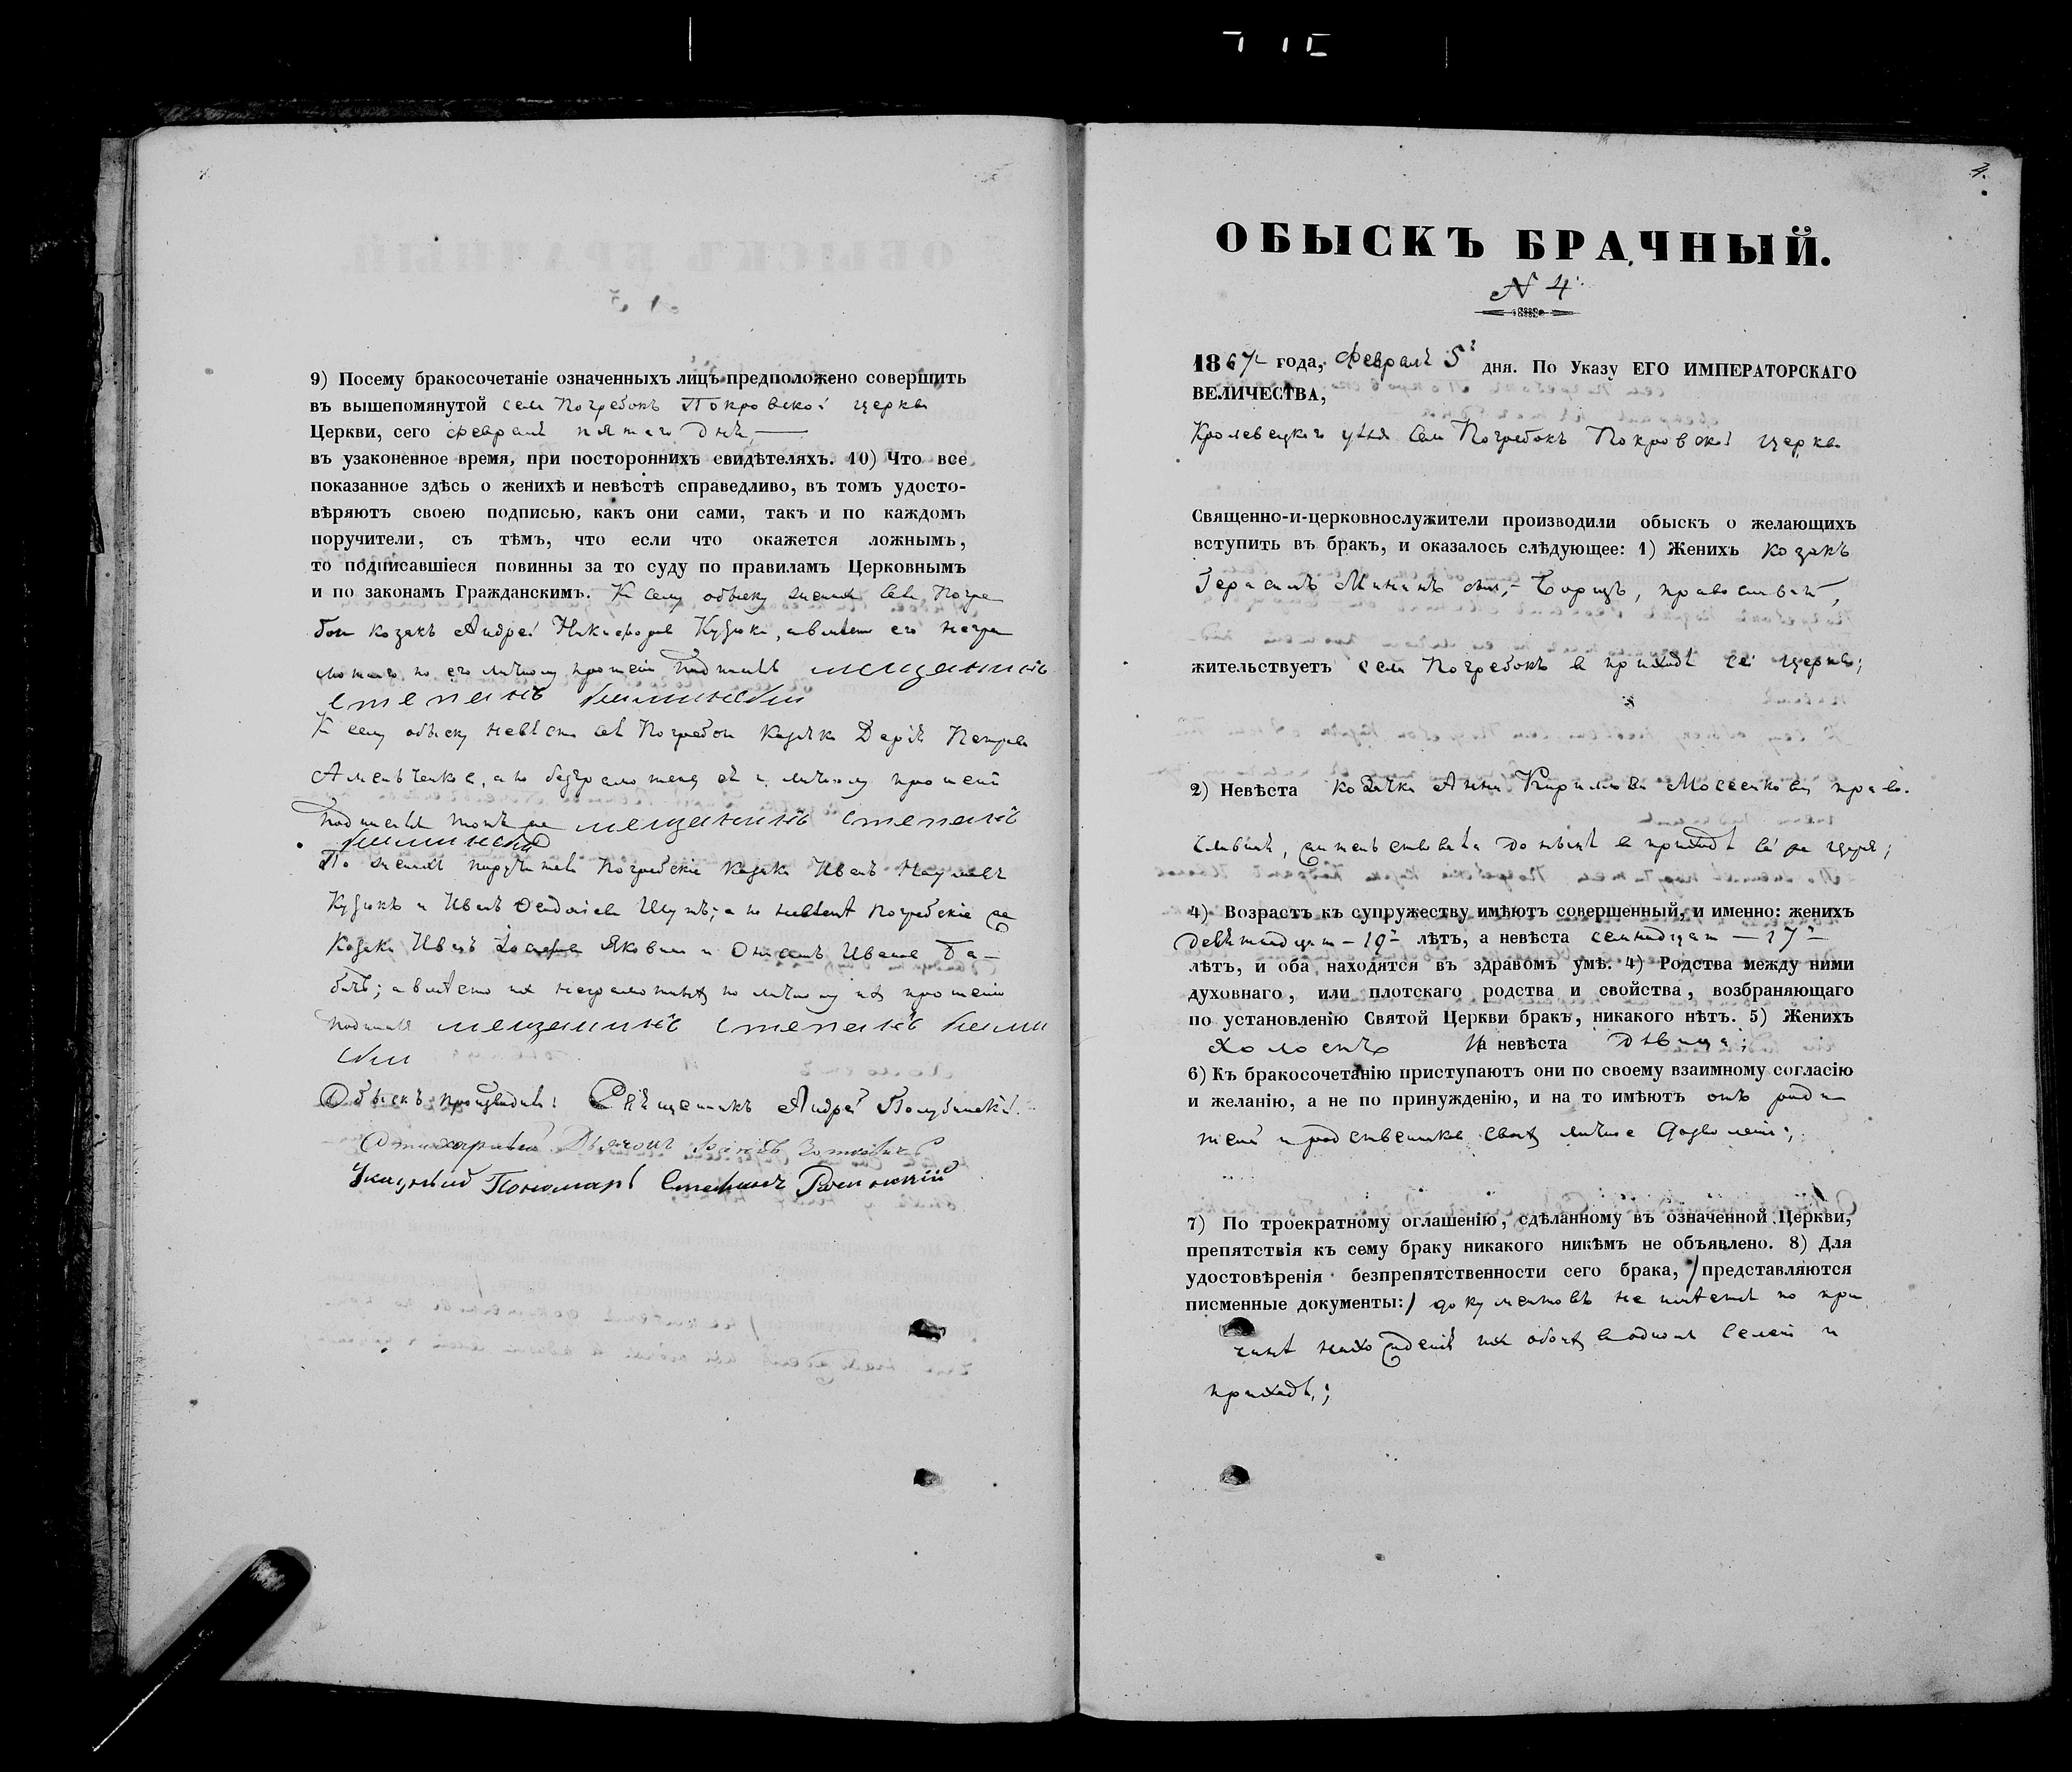 9) Посему бракосочетаніе означенныхъ лицъ предположено совершить
въ вышепомянутой села Погребокъ Покровской церкви
Церкви, сего февраля пятаго дня
въ узаконенное время, при постороннихъ свидѣтеляхъ. 10) Что все
показанное здѣсь о женихѣ и невѣстѣ справедливо, въ томъ удосто-
вѣряютъ своею подписью, какъ они сами, такъ и по каждомъ
поручители, съ тѣмъ, что если что окажется ложнымъ,
то подписавшіеся повинны за то суду по правиламъ Церковнымъ
и по законамъ Гражданскимъ. К сему обыску женихъ села Погре
бокъ козакъ Андрей Никифоровъ а вмѣсто его негра
мотнаго по его личному прошенію подписалъ мещанинъ
степанъ
К сему обыску невѣста села Погребокъ козачка Дарія Петрова
а по безграмотству ея и личному прошенію
подписалъ тотъ же мещанинъ степанъ
По женихѣ поручители Погребскіе козаки Иванъ Наумовъ
и Иванъ а по невѣстѣ Погребскіе же
козаки Иванъ Яковъ и Онисимъ Ивановъ Ба-
а вмѣсто ихъ неграмотныхъ по личному ихъ прошенію
подписалъ мещанинъ степанъ
Обыскъ производили: Священникъ Андрей
Дьячокъ
Указный Пономарь Стефанъ
4.
ОБЫСКЪ БРАЧНЫЙ.
N 4
1867 года, февраля 5 дня. По Указу ЕГО ИМПЕРАТОРСКАГО
ВЕЛИЧЕСТВА,
Кролевецкаго уѣзда села Погребокъ Покровской церкви
Священно-и-церковнослужители производили обыскъ о желающихъ
вступить въ бракъ, и оказалось слѣдующее: 1) Женихъ козакъ
Герасимъ Мининъ сынъ Борщъ, православный,
жительствуетъ села Погребокъ в приходѣ сей церкви;
2) Невѣста козачка Анна Кирилова Мосеенкова право-
славная, жительствовала донынѣ в приходѣ сей же церкви;
4) Возрастъ къ супружеству имѣютъ совершенный, и именно: женихъ
девятнадцать – 19 – лѣтъ, а невѣста семнадцать – 17 –
лѣтъ, и оба находятся въ здравомъ умѣ. 4) Родства между ними
духовнаго, или плотскаго родства и свойства, возбраняющаго
по установленію Святой Церкви бракъ, никакого нѣтъ. 5) Женихъ
холостъ а невѣста дѣвица;
6) Къ бракосочетанію приступаютъ они по своему взаимному согласію
и желанію, а не по принужденію, и на то имѣютъ отъ роди
телей и родственниковъ своихъ личное дозволеніе;
7) По троекратному оглашенію, сдѣланному въ означенной Церкви,
препятствія къ сему браку никакого никѣмъ не объявлено. 8) Для
удостовѣренія безпрепятственности сего брака, представляются
писменные документы: документовъ не имѣется по при
чинѣ нахожденія ихъ обоихъ в одномъ селеніи и
приходѣ;